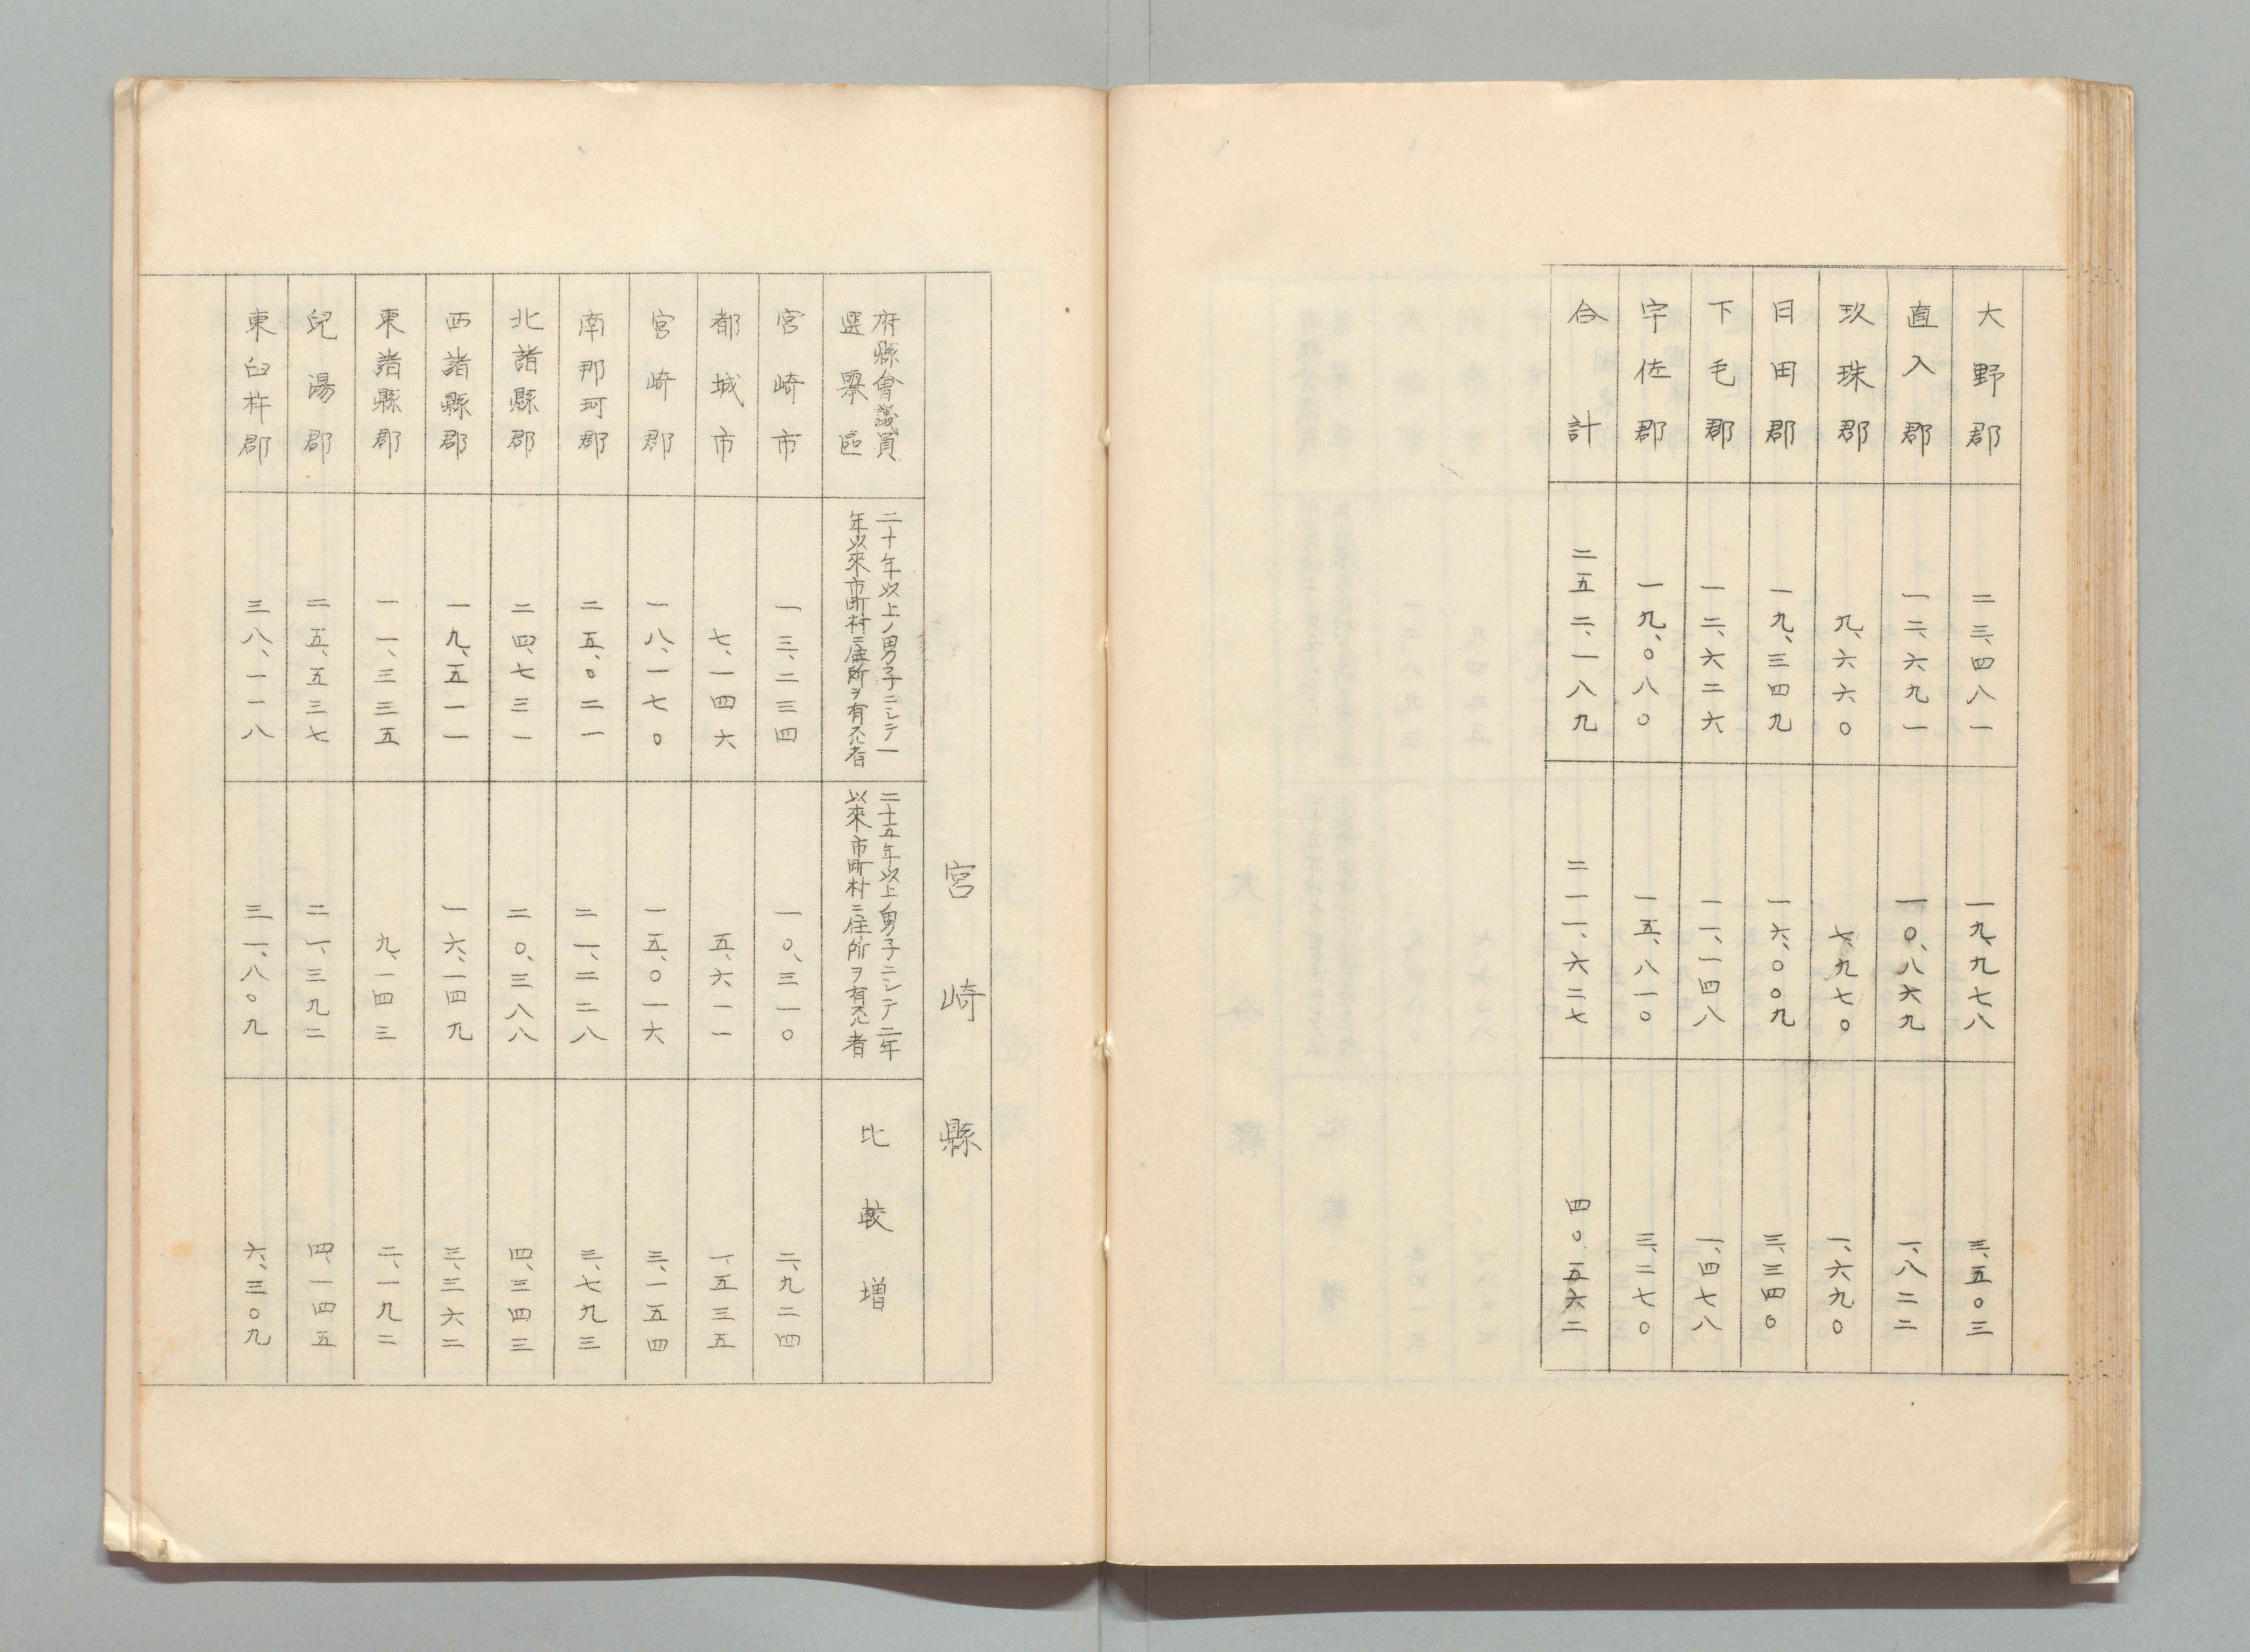 大野郡 二三、四八一 一九、九七八 三、五〇三
直入郡 一二、六九一 一〇、八六九 一、八二二
玖珠郡 九、六六〇 七、九七〇 一、六九〇
日田郡 一九、三四九 一六、〇〇九 三、三四〇
下毛郡 一二、六二六 一一、一四八 一、四七八
宇佐郡 一九、〇八〇 一五、八一〇 三、二七〇
合計 二五二、一八九 二一一、六二七 四〇、五六二
宮崎縣
府縣會議員
選擧區
二十年以上ノ男子ニシテ一
年以來市町村ニ住所ヲ有スル者
二十五年以上ノ男子ニシテ二年
以來市町村ニ住所ヲ有スル者
比較増
宮崎市 一三、二三四 一〇、三一〇 二、九二四
都城市 七、一四六 五、六一一 一、五三五
宮崎郡 一八、一七〇 一五、〇一六 三、一五四
南那珂郡 二五、〇二一 二一、二二八 三、七九三
北諸縣郡 二四、七三一 二〇、三八八 四、三四三
西諸縣郡 一九、五一一 一六、一四九 三、三六二
東諸縣郡 一一、三三五 九、一四三 二、一九二
兒湯郡 二五、五三七 二一、三九二 四、一四五
東臼杵郡 三八、一一八 三一、八〇九 六、三〇九